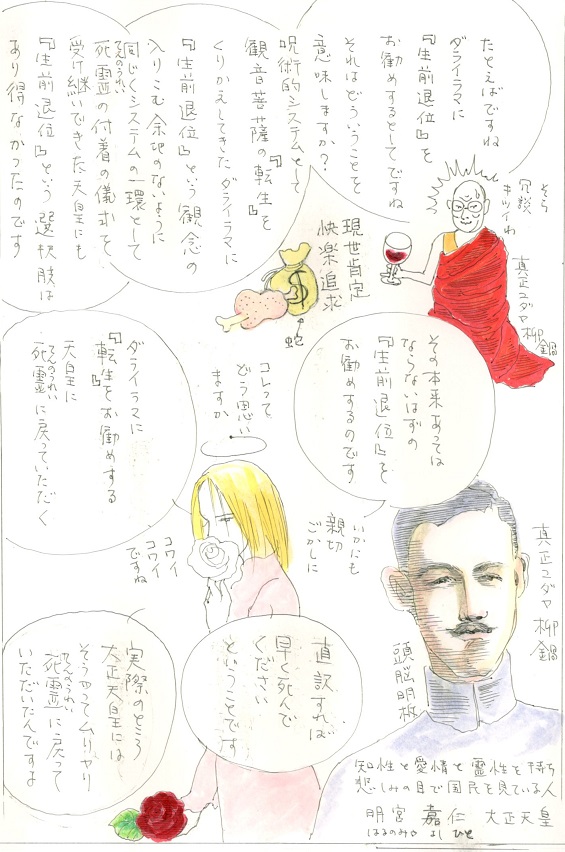 たとえばですね
ダライラマに
『生前退位』を
お勧めするとしてですね
それはどういうことを
意味しますか?
呪術的システムとして
観音菩薩の『転生』を
くりかえしてきたダライラマに
『生前退位』という観念の
入りこむ余地のないように
同じくシステムの一環として
死霊の付着の儀式を
てんのうれい
受け継いできた天皇にも
『生前退位』という選択肢は
あり得なかったのです
そら
冗談
キツイわ
真正ユダヤ
柳鍋
現世肯定
快楽追求
蛇
その本来あっては
ならないはずの
『生前退位』を
お勧めするのです
コレって
どう思い
ますか
ダライラマに
『転生』をお勧めする
天皇に
死霊に戻っていただく
てんのうれい
いかにも
親切
ごかしに
コワイ
コワイ
ですね
真正ユダヤ
柳鍋
頭脳明敏
直訳すれば
早く死んで
ください
ということです
実際のところ
大正天皇には
そうやってムリヤリ
死霊に戻って
てんのうれい
いただいたんですよ
知性と愛情と霊性を持ち
悲しみの目で国民を見ている人
明宮 嘉仁 大正天皇
はるのみや よしひと